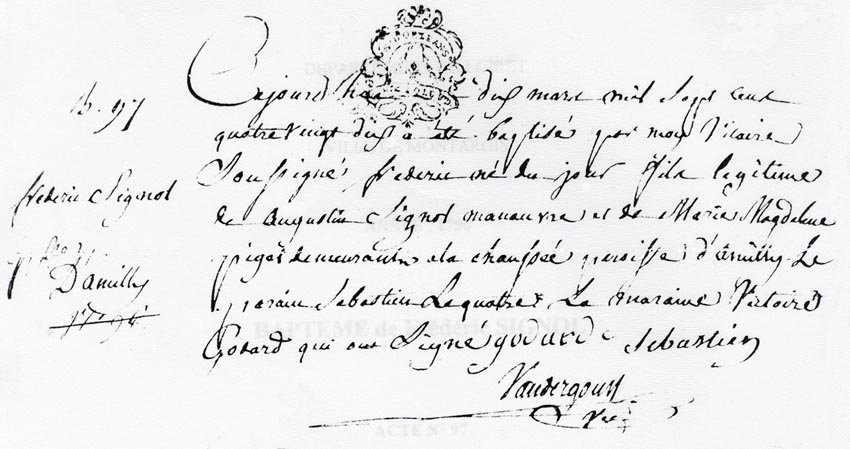 B. 97
frederic Signol
p.sse
D'amilly
Aujourd'hui dix mars mil Sept cent
quatre vingt dix a été baptisé par moy Vicaire
Soussigné, frederic né du jour fils legitime
de augustin Signol manœuvre et de Marie Magdelene
pigot demeurant a la chaussée paroisse d'amilly. Le
parain Sebastien Lequatre, La maraine Victoire
Godard qui ont Signé godard Sebastien
Vandergous
Vic
BAPTEME de Frédéric SIGNOL
ACTE N° 97